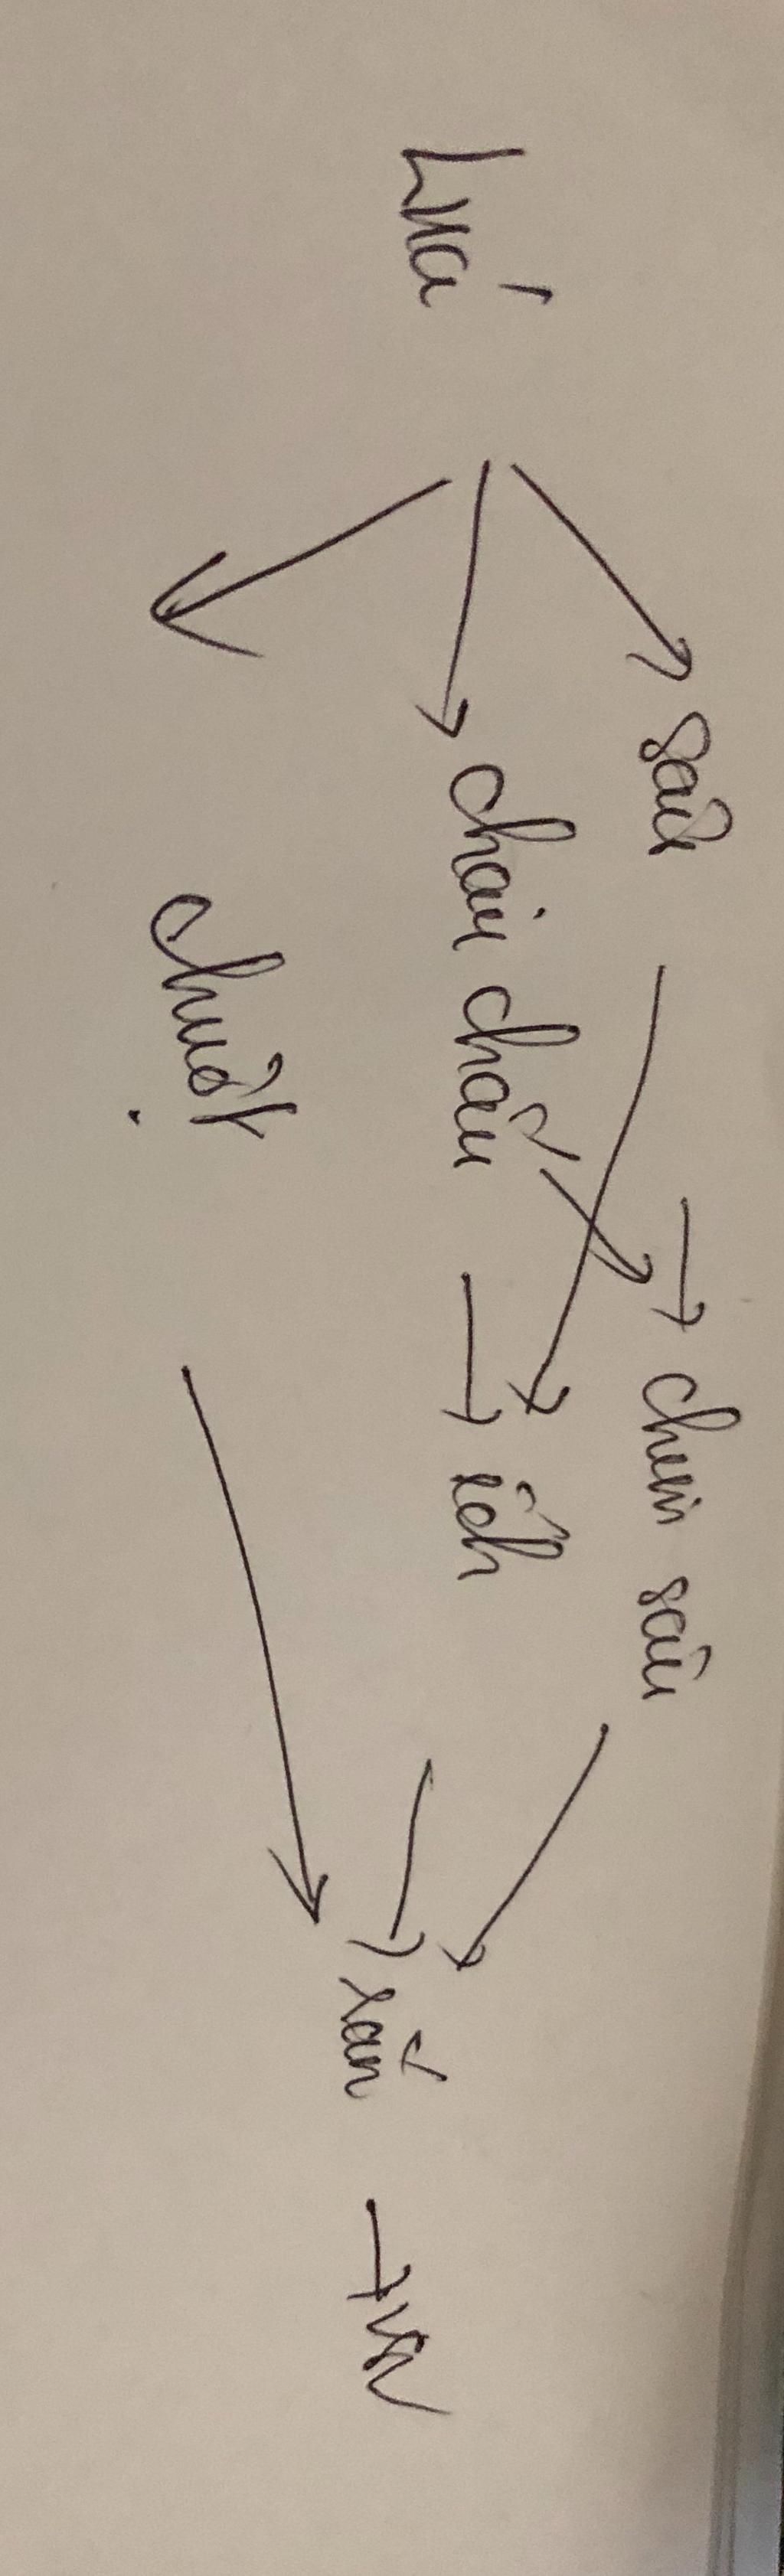 sâu → chim sâu
Lúa → châu chấu → ếch → rắn → VSV
chuột